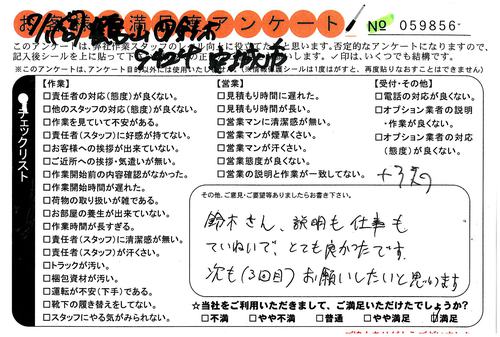 お客様満足度アンケート
№ 059856
このアンケートは、弊社作業スタッフのレベル向上に役立てたいと思います。否定的なアンケートになりますので、
記入後シールを上に貼って下
✓印は、いくつでも結構です。
(※このアンケートは、アンケート目的以外には使用いたしません。)(※情報保護シールは1度はがすと、再度貼りなおすことはできません)
チェックリスト
【作業】
□責任者の対応(態度)が良くない。
□他のスタッフの対応(態度)が良くない。
□作業を見ていて不安がある。
□責任者(スタッフ)に好感が持てない。
□お客様への挨拶が出来ていない。
□ご近所への挨拶・気遣いが無い。
□作業開始前の内容確認がなかった。
□作業開始時間が遅れた。
□荷物の取り扱いが雑である。
□お部屋の養生が出来ていない。
□作業時間が長すぎる。
□責任者(スタッフ)に清潔感が無い。
□責任者(スタッフ)が汗くさい。
□トラックが汚い。
□梱包資材が汚い。
□運転が不安(下手)である。
□靴下の履き替えをしてない。
□スタッフにやる気がみられない。
【営業】
□見積もり時間に遅れた。
□見積もり時間が長い。
□営業マンに清潔感が無い。
□営業マンが煙草くさい。
□営業マンが汗くさい。
□営業態度が良くない。
□営業の説明と作業が一致してない。
【受付・その他】
□電話の対応が良くない。
□オプション業者の説明
・作業が良くない。
□オプション業者の対応
(態度)が良くない。
その他、ご意見・ご要望等ありましたらお書き下さい。
鈴木さん、説明も仕事も
ていねいで、とても良かったです。
次も(3回目)お願いしたいと思います
☆当社をご利用いただきまして、ご満足いただけたでしょうか?
□不満 □やや不満 □普通 □やや満足 □満足